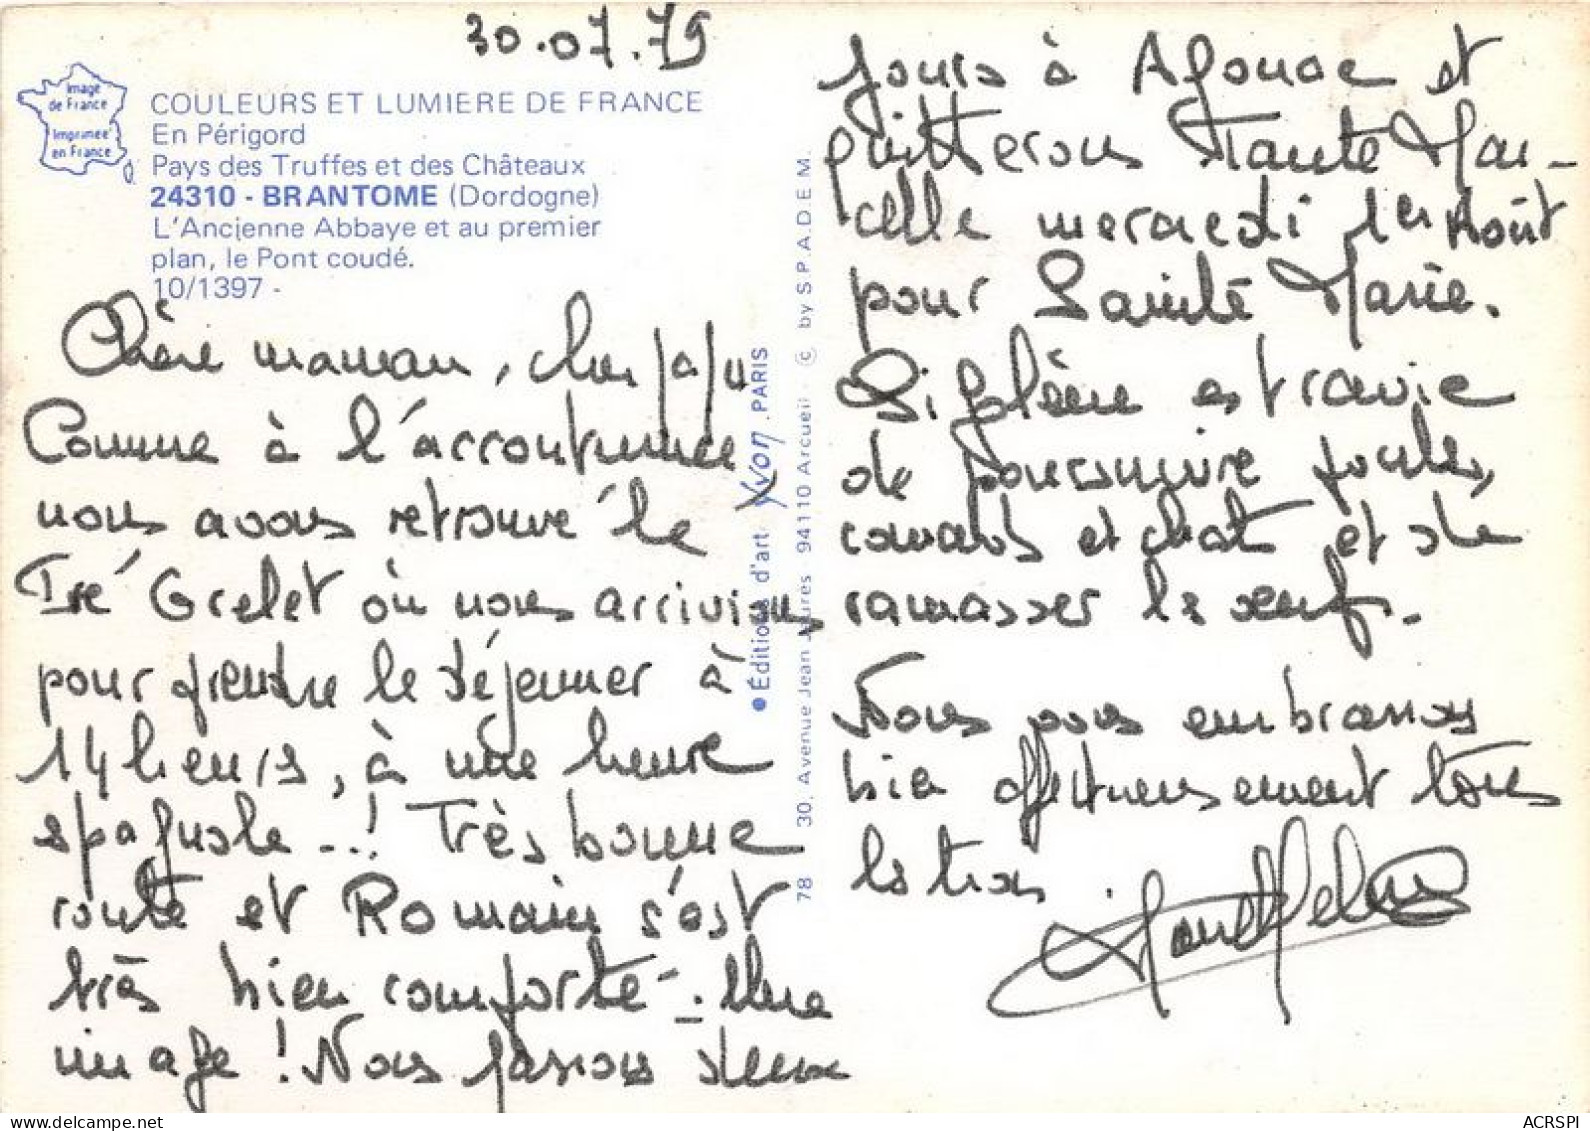 30.07.79
Image
de France
Imprimée
en France
COULEURS ET LUMIERE DE FRANCE
En Périgord
Pays des Truffes et des Châteaux
24310 - BRANTOME (Dordogne)
L'Ancienne Abbaye et au premier
plan, le Pont coudé.
10/1397 -
Chère maman, cher papu
Comme à l'accoutumée
nous avons retrouvé le
Pré Grelet où nous arrivions
pour prendre le déjeuner à
14 heures, à une heure
espagnole --! Très bonne
route et Romain s'est
très bien comporté -. Une
image ! Nous passons deux
● Éditions d'art Yvon . PARIS
78 30, Avenue Jean Jaurès - 94110 Arcueil - © by S.P.A.D.E.M.
jours à Agonac et
quitterons Tante Mar-
celle mercredi 1er Août
pour Sainte Marie.
Sigolène est ravie
de poursuivre poules,
canards et chats et de
ramasser les oeufs.
Nous vous embrassons
bien affectueusement tous
les trois
ACRSPI